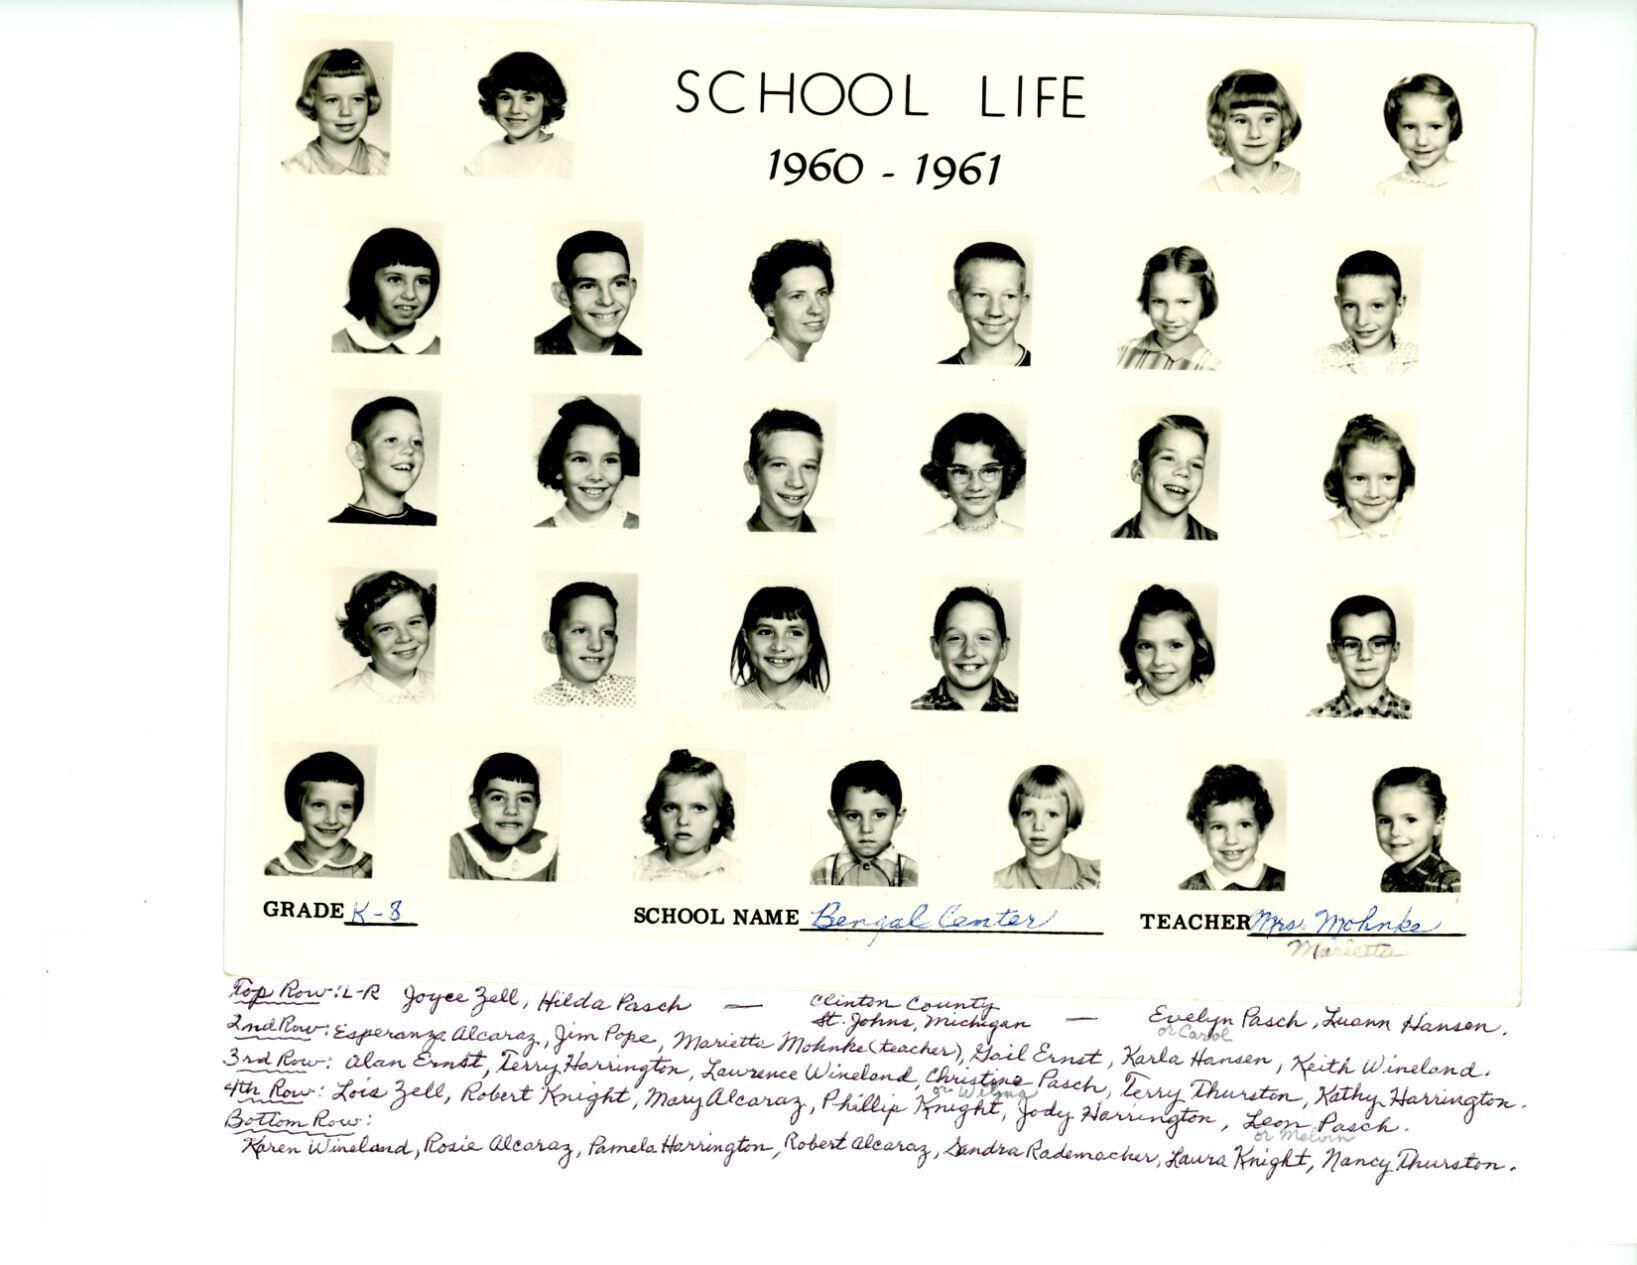 SCHOOL LIFE
1960 - 1961
GRADE K-8 SCHOOL NAME Bengal Center TEACHER Mrs. Mohnke
Marietta
Top Row: L-R Joyce Zell, Hilda Pasch — Clinton County St. Johns, Michigan — Evelyn Pasch, Luann Hansen.
or Carol
2nd Row: Esperanza Alcaraz, Jim Pope, Marietta Mohnke (teacher), Gail Ernst, Karla Hansen, Keith Wineland.
3rd Row: Alan Ernst, Terry Harrington, Lawrence Wineland, Christine Pasch, Terry Thurston, Kathy Harrington.
or Wilma
4th Row: Lois Zell, Robert Knight, Mary Alcaraz, Phillip Knight, Jody Harrington, Leon Pasch.
or Melvin
Bottom Row:
Karen Wineland, Rosie Alcaraz, Pamela Harrington, Robert Alcaraz, Sandra Rademacher, Laura Knight, Nancy Thurston.